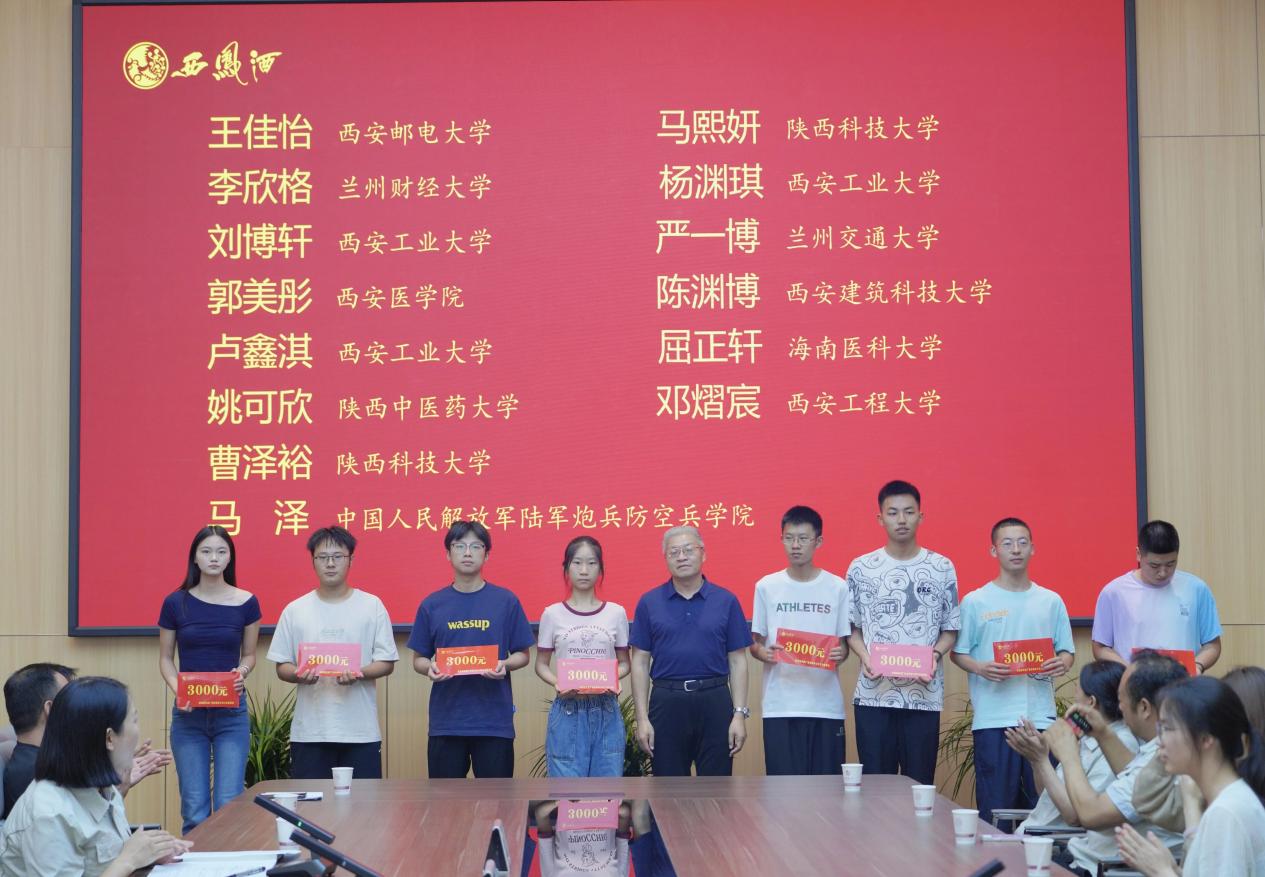 西鳳酒
王佳怡 西安邮电大学
马熙妍 陕西科技大学
李欣格 兰州财经大学
杨渊琪 西安工业大学
刘博轩 西安工业大学
严一博 兰州交通大学
郭美彤 西安医学院
陈渊博 西安建筑科技大学
卢鑫淇 西安工业大学
屈正轩 海南医科大学
姚可欣 陕西中医药大学
邓熠宸 西安工程大学
曹泽裕 陕西科技大学
马 泽 中国人民解放军陆军炮兵防空兵学院
wassup
PINOCCHIO
ATHLETES
3000元
3000元
3000元
3000元
3000元
3000元
3000元